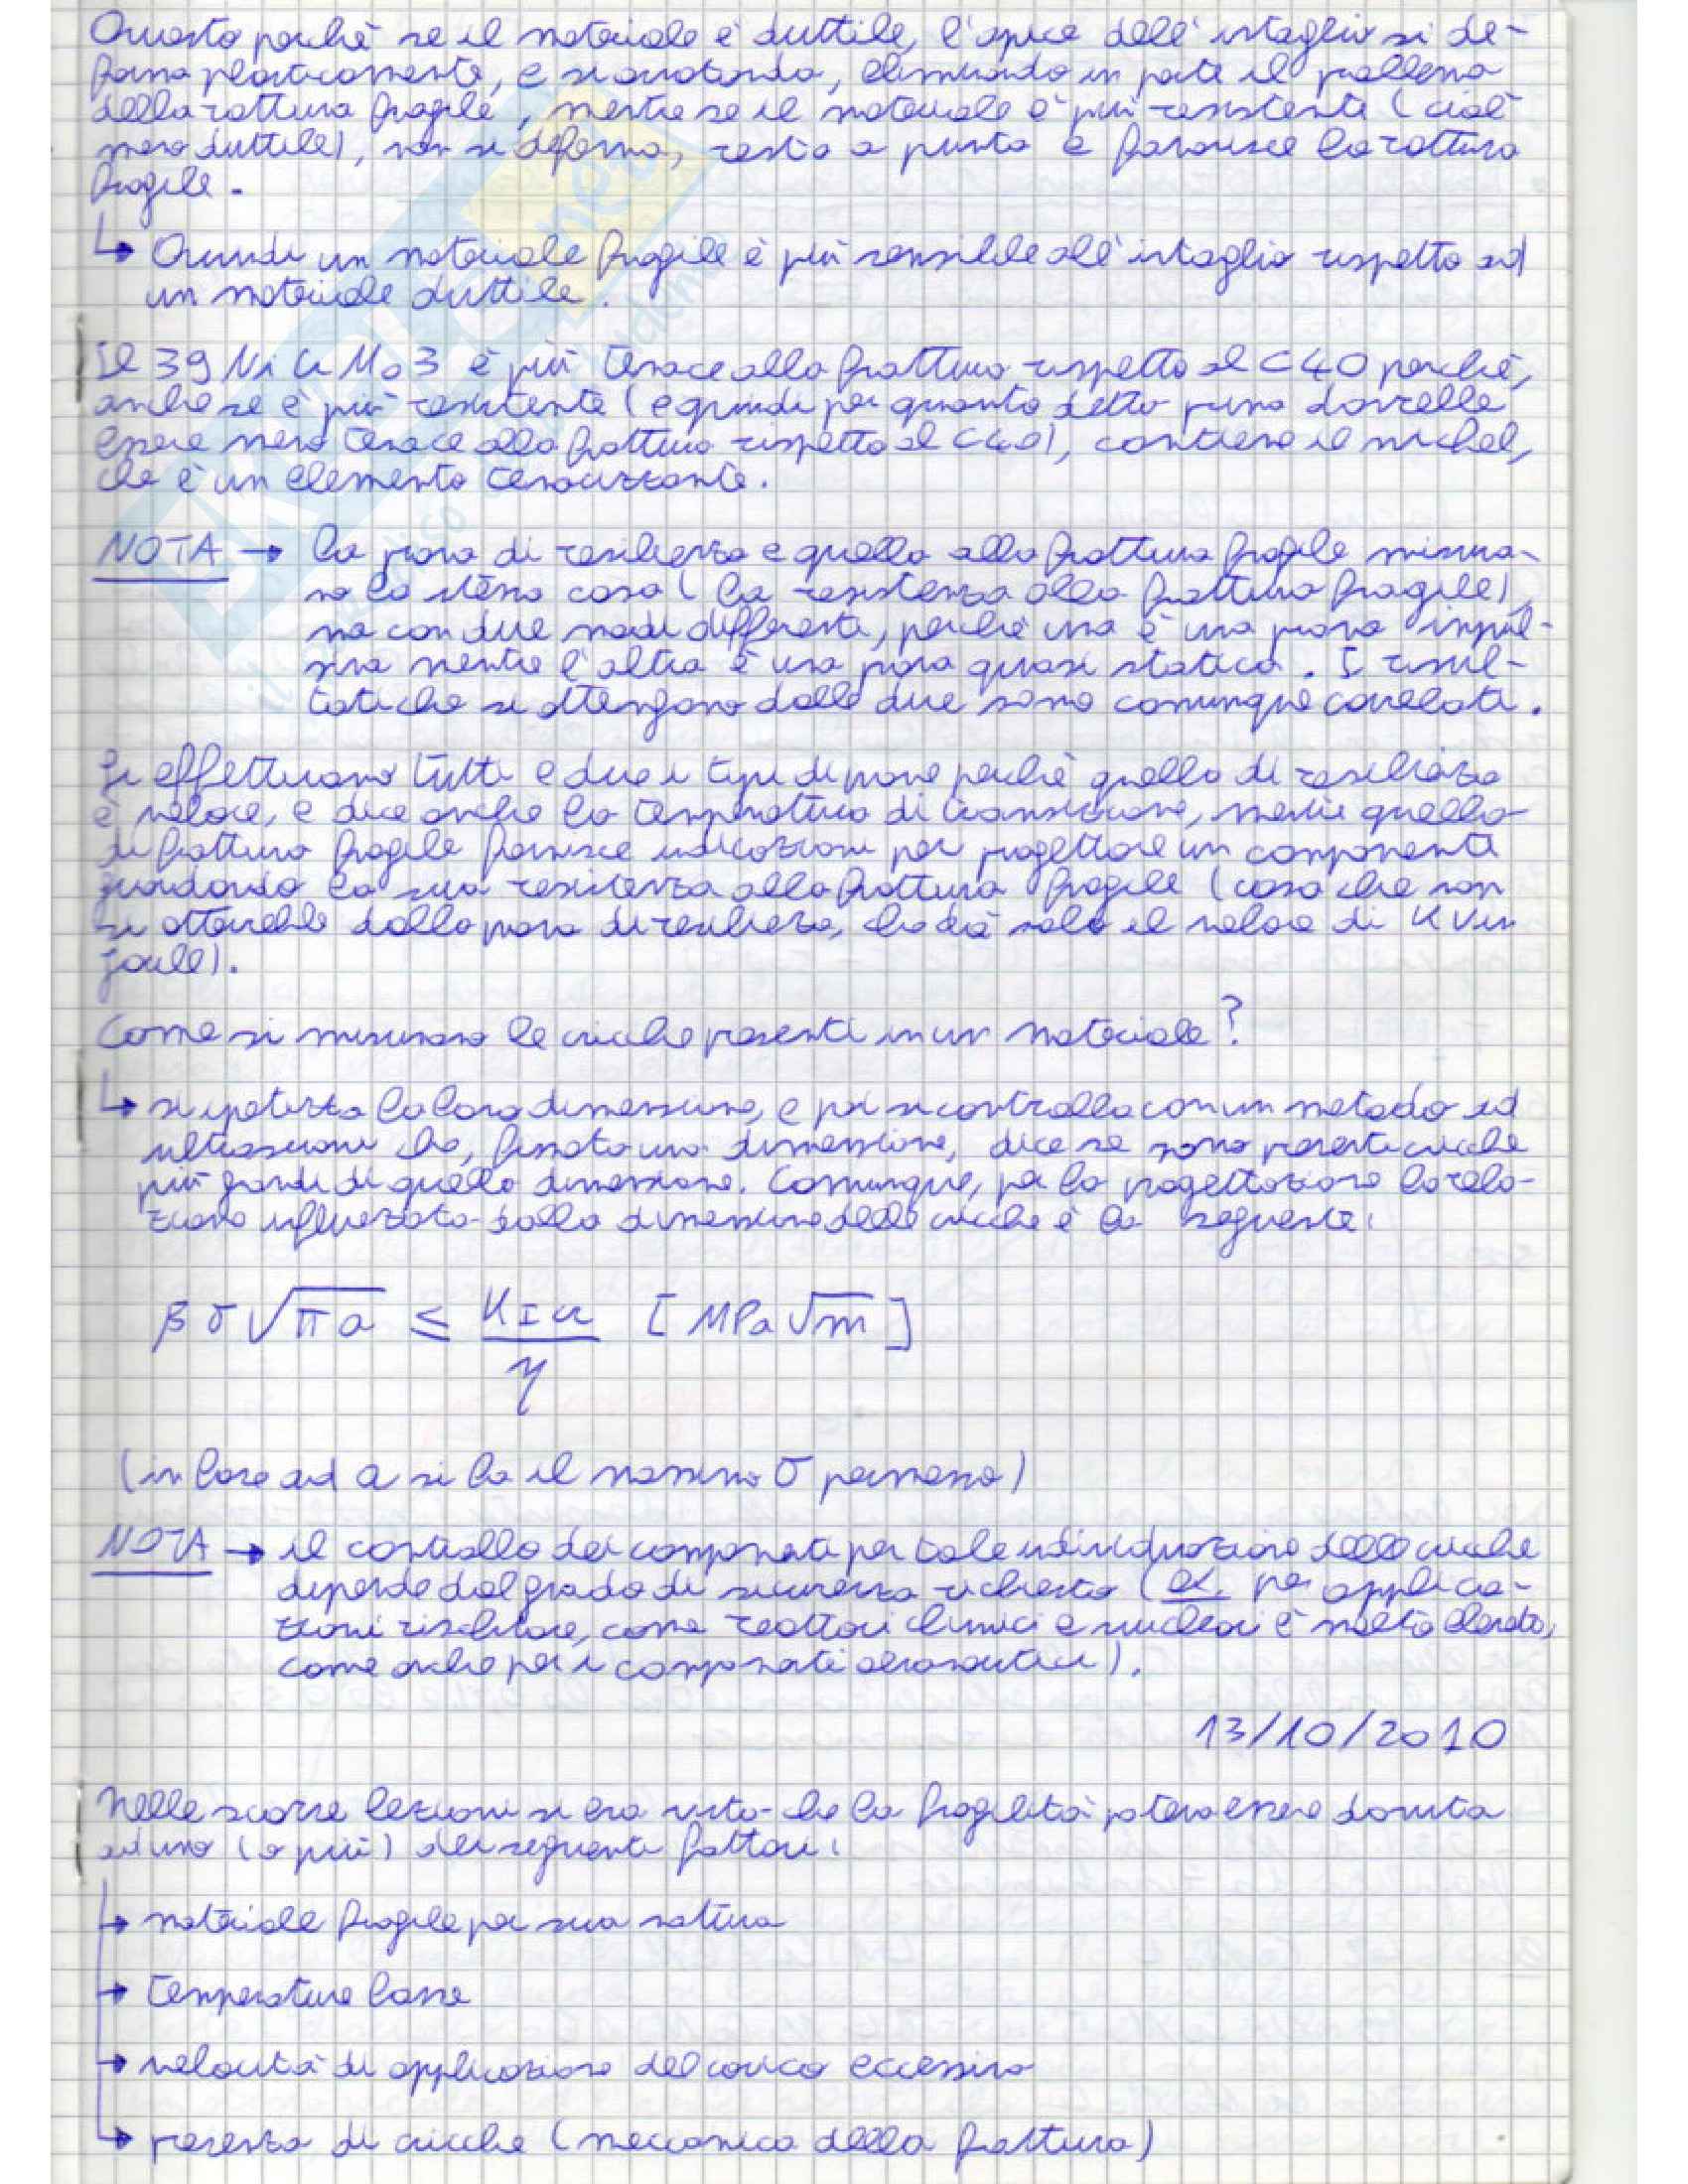 Questo perché se il materiale è duttile, l'apice dell'intaglio si de-
forma plasticamente, e si arrotonda, eliminando in parte il problema
della rottura fragile, mentre se il materiale è più resistente (cioè
meno duttile), non si deforma, resta a punta e favorisce la rottura
fragile.
↳ Quindi un materiale fragile è più sensibile all'intaglio rispetto ad
un materiale duttile.
Il 39NiCrMo3 è più tenace alla frattura rispetto al C40 perché,
anche se è più resistente (e quindi per quanto detto prima dovrebbe
essere meno tenace alla frattura rispetto al C40), contiene il nichel,
che è un elemento tenacizzante.
NOTA → la prova di resilienza e quella alla frattura fragile misura-
no la stessa cosa (la resistenza alla frattura fragile),
ma con due modi differenti, perché una è una prova impul-
siva mentre l'altra è una prova quasi statica. I risul-
tati che si ottengono dalle due sono comunque correlati.
Si effettuano tutti e due i tipi di prove perché quello di resilienza
è veloce, e dice anche la temperatura di transizione, mentre quello
di frattura fragile fornisce indicazioni per progettare un componente
guardando la sua resistenza alla frattura fragile (cosa che non
si otterrebbe dalla prova di resilienza, che dà solo il valore di KV in
joule).
Come si misurano le cricche presenti in un materiale?
↳ si ipotizza la loro dimensione, e poi si controlla con un metodo ad
ultrasuoni che, fissata una dimensione, dice se sono presenti cricche
più grandi di quella dimensione. Comunque, per la progettazione la rela-
zione influenzata dalla dimensione delle cricche è la seguente:
β σ √πa ≤ KIc / η [MPa √m]
(in base ad a si ha il massimo σ permesso)
NOTA → il controllo dei componenti per tale individuazione delle cricche
dipende dal grado di sicurezza richiesto (es. per applica-
zioni rischiose, come reattori chimici e nucleari è molto elevato,
come anche per i componenti aeronautici).
13/10/2010
Nelle scorse lezioni si era visto che la fragilità poteva essere dovuta
ad uno (o più) dei seguenti fattori:
→ materiale fragile per sua natura
→ temperature basse
→ velocità di applicazione del carico eccessiva
↳ presenza di cricche (meccanica della frattura)